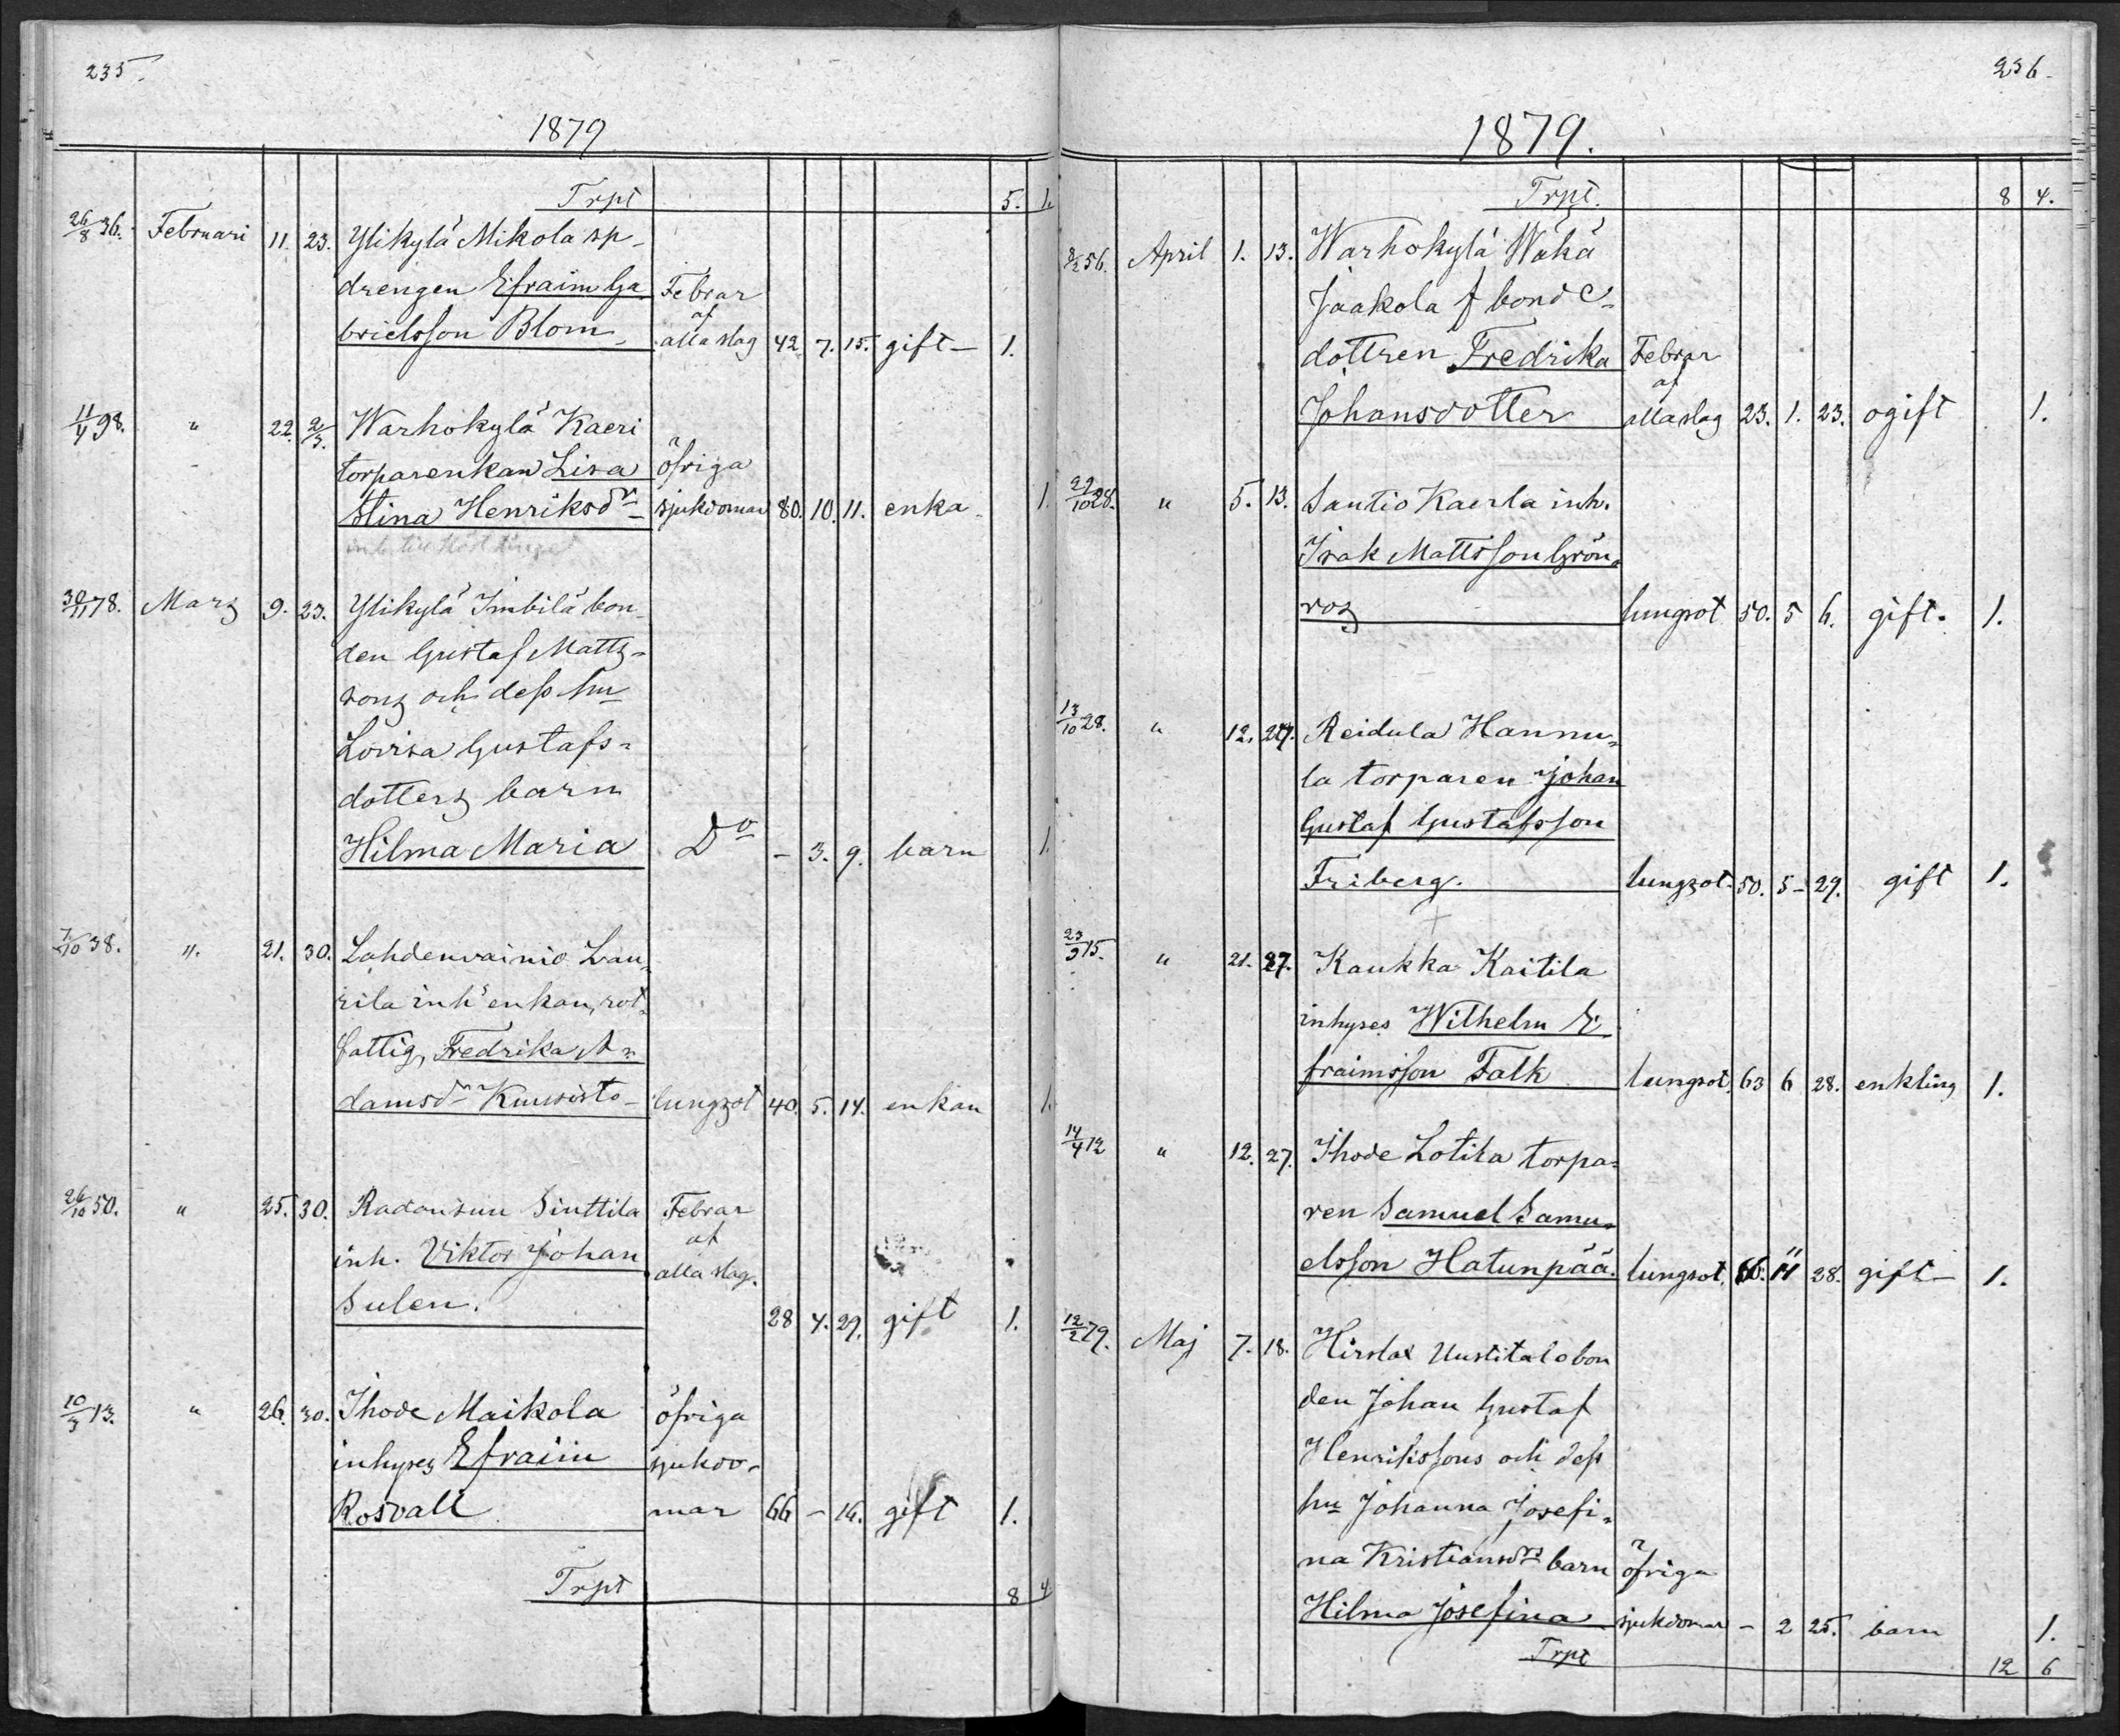 235.
1879
Trpt 5. 1.
26/8 36. Februari 11. 23. Ylikylä Mikola sp.
drengen Efraim Ga Febrar
brielsson Blom. af alla slag 42 7. 15. gift - 1.
11/4 98. " 22. 2/3. Warhokylä Kaeri
torparenkan Lisa öfriga
Stina Henriksdr sjukdomar 80. 10. 11. enka. 1.
30/11 78. Marz 9. 23. Ylikylä Imbilä bon
den Gustaf Matts-
sons och dess hu
Lovisa Gustafs-
dotters barn
Hilma Maria Do - 3. 9. barn 1.
7/10 38. ". 21. 30. Lahdenvainio Lau-
rila inhs enkan, rot-
fattig, Fredrika A-
damsdr Kuusisto - lungsot 40. 5. 14. enkan 1.
26/10 50. " 25. 30. Radansuu Sinttila Febrar
inh. Viktor Johan af alla slag.
Sulen. 28 4. 29. gift 1.
10/3 13. " 26. 30. Ihode Maikola öfriga
inhyses Efraim sjukdo-
Rosvall mar 66 - 16. gift 1.
Trpt 8 4
236.
1879.
Trpt. 8 4.
8/2 56. April 1. 13. Warhokylä Wähä
Jaakola f bonde-
dottren Fredrika Febrar
Johansdotter af alla slag 23. 1. 23. ogift 1.
29/10 28. " 5. 13. Santio Kaerla inh.
Isak Mattsson Grön-
ros lungsot 50. 5 6. gift. 1.
13/10 28. " 12. 27. Reidula Hannu-
la torparen Johan
Gustaf Gustafsson
Friberg. lungsot 50. 5 - 29. gift 1.
23/9 15. " 21. 27. Kaukka Kaitila
inhyses Wilhelm E-
fraimsson Falk lungsot 63 6 28. enkling 1.
14/4 12 " 12. 27. Ihode Lotila torpa-
ren Samuel Samu-
elsson Hatunpää. lungsot 66. 11 28. gift - 1.
12/2 79. Maj 7. 18. Hirslax Uustitalo bon
den Johan Gustaf
Henrikssons och dess
hu Johanna Josefi-
na Kristiansdrs barn öfriga
Hilma Josefina sjukdomar - 2 25. barn 1.
Trpt 12 6